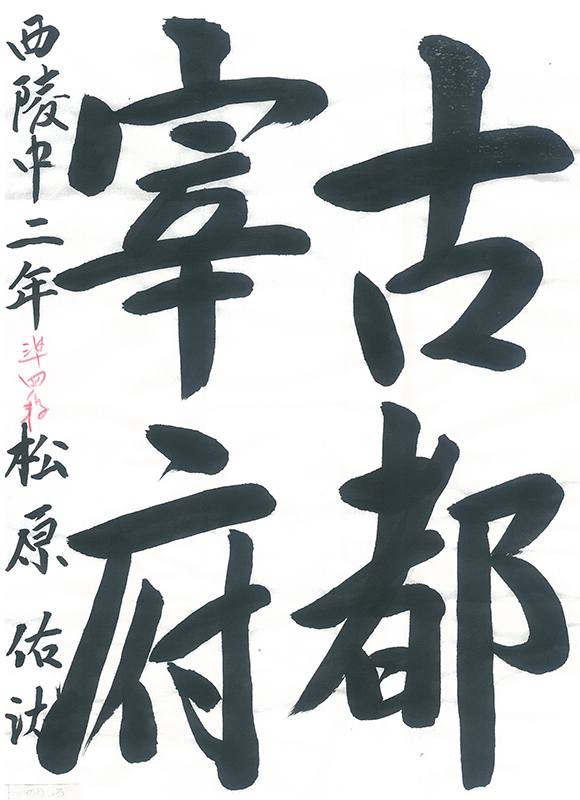 古都
宰府
西陵中二年 準四段 松原 佑汰
のりしろ